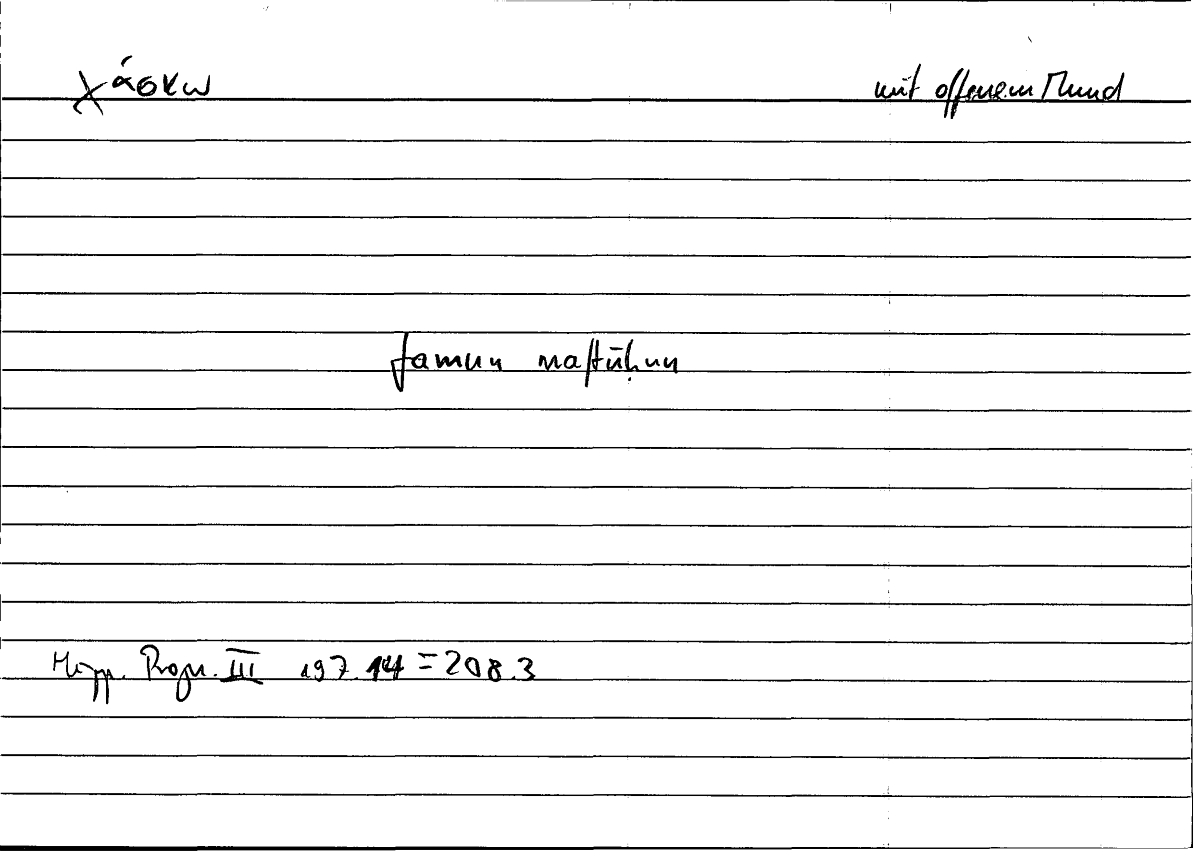 χάσκω mit offenem Mund
famun maftūḥun
Hipp. Progn. III 197.14 = 208.3